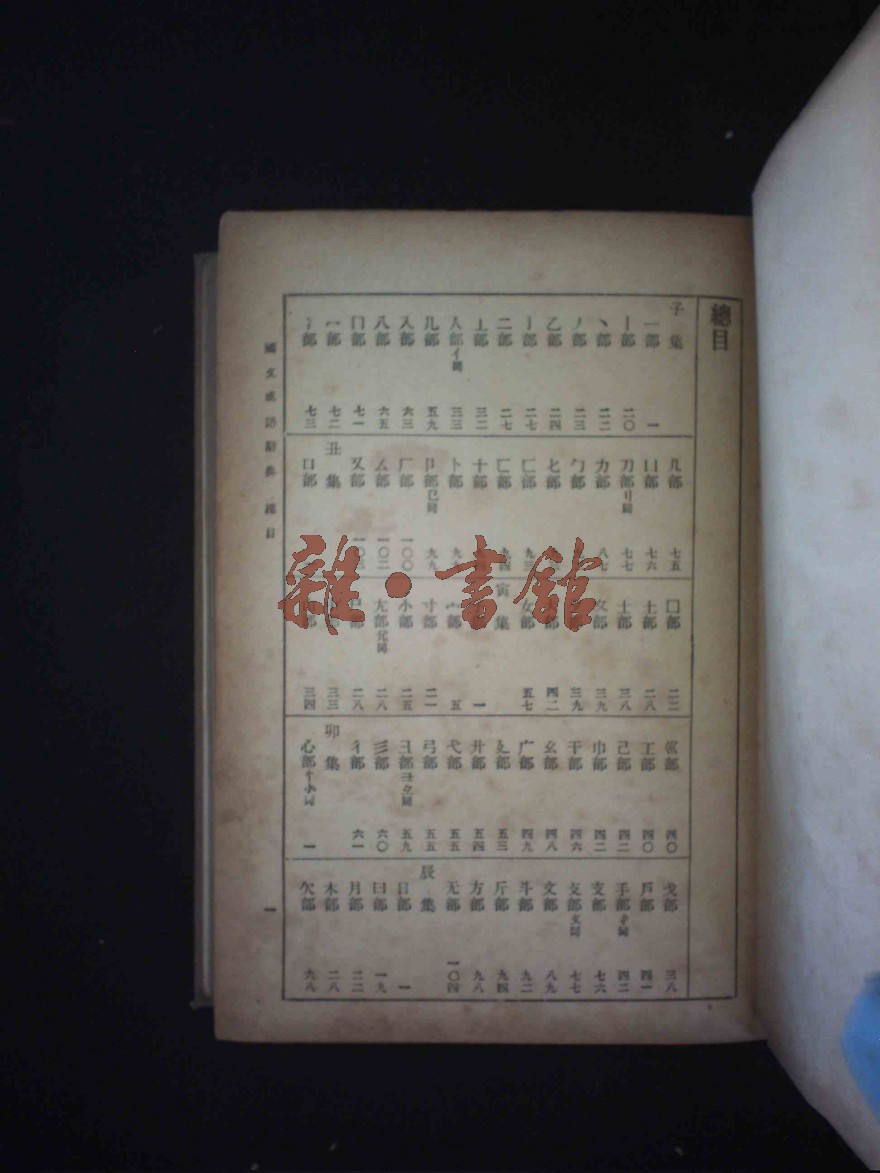 總目
子集
一部 一
丨部 二〇
丶部 二二
丿部 二三
乙部 二四
亅部 二七
二部 二七
亠部 三二
人部亻同 三三
儿部 五九
入部 六三
八部 六五
冂部 七一
冖部 七二
冫部 七三
几部 七五
凵部 七六
刀部刂同 七七
力部 八七
勹部
匕部
匚部 九三
匸部 九四
十部
卜部
卩部㔾同 九九
厂部 一〇〇
厶部 一〇二
又部
丑集
口部
囗部 二二
土部 二八
士部 三八
夂部 三九
部 三九
部 四二
女部 五七
寅集
部 一
宀部 五
寸部 二一
小部 二五
尢部尣同 二八
尸部 二八
部 三三
部 三四
巛部 四〇
工部 四〇
己部 四二
巾部 四二
干部 四六
幺部 四八
广部 四九
廴部 五三
廾部 五四
弋部 五五
弓部 五五
彐部彑同 五九
彡部 六〇
彳部 六一
卯集
心部忄㣺同 一
戈部 三八
戶部 四一
手部扌同 四二
支部 七六
攴部攵同 七七
文部 八九
斗部 九二
斤部 九四
方部 九八
无部 一〇四
辰集
日部 一
曰部 一九
月部 二二
木部 二八
欠部 六八
國文成語辭典 總目 一
雜·書館